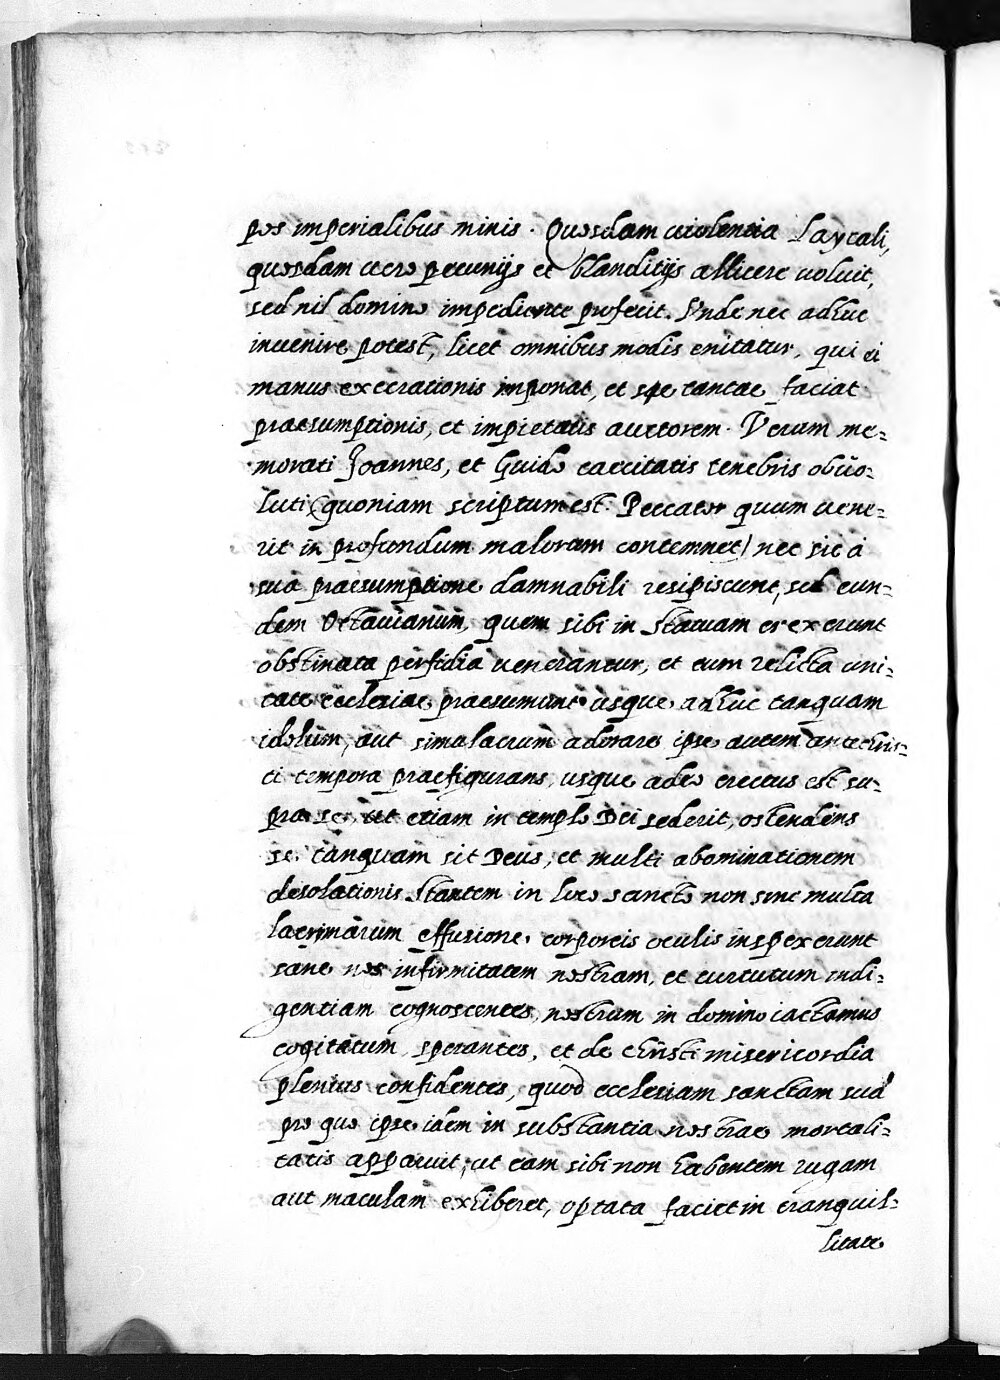 pos imperialibus minis. Quosdam uiolentia Laycali,
quosdam uero pecunijs et blanditijs allicere uoluit,
sed nil domino impediente profecit. Vnde nec adhuc
inuenire potest, licet omnibus modis enitatur, qui ei
manus execrationis imponat, et spe tantae faciat
praesumptionis, et impietatis auctorem. Verum me-
morati Joannes, et Guido caecitatis tenebris obuo-
luti (quoniam scriptum est. Peccator quum uene-
rit in profundum malorum contemnet) nec sic à
sua praesumptione damnabili resipiscunt, sed eun-
dem Octauianum, quem sibi in statuam erexerunt
obstinata perfidia uenerantur, et eum relicta uni-
tate ecclesiae praesumunt usque adhuc tanquam
idolum, aut simulacrum adorare ipse autem antechris-
ti tempora praefigurans, usque adeo erectus est su-
pra se, ut etiam in templo Dei sederit, ostendens
se tanquam sit Deus, et multi abominationem
desolationis stantem in loco sancto non sine multa
lacrimarum effusione corporeis oculis inspexerunt
sane nos infirmitatem nostram, et uirtutum indi-
gentiam cognoscentes, nostrum in domino iactamus
cogitatum, sperantes, et de Christi misericordia
plenius confidentes, quod ecclesiam sanctam suã
pro qua ipse idem in substantia nostrae mortali-
tatis apparuit, ut eam sibi non habentem rugam
aut maculam exhiberet, optata faciet in tranquil-
litate